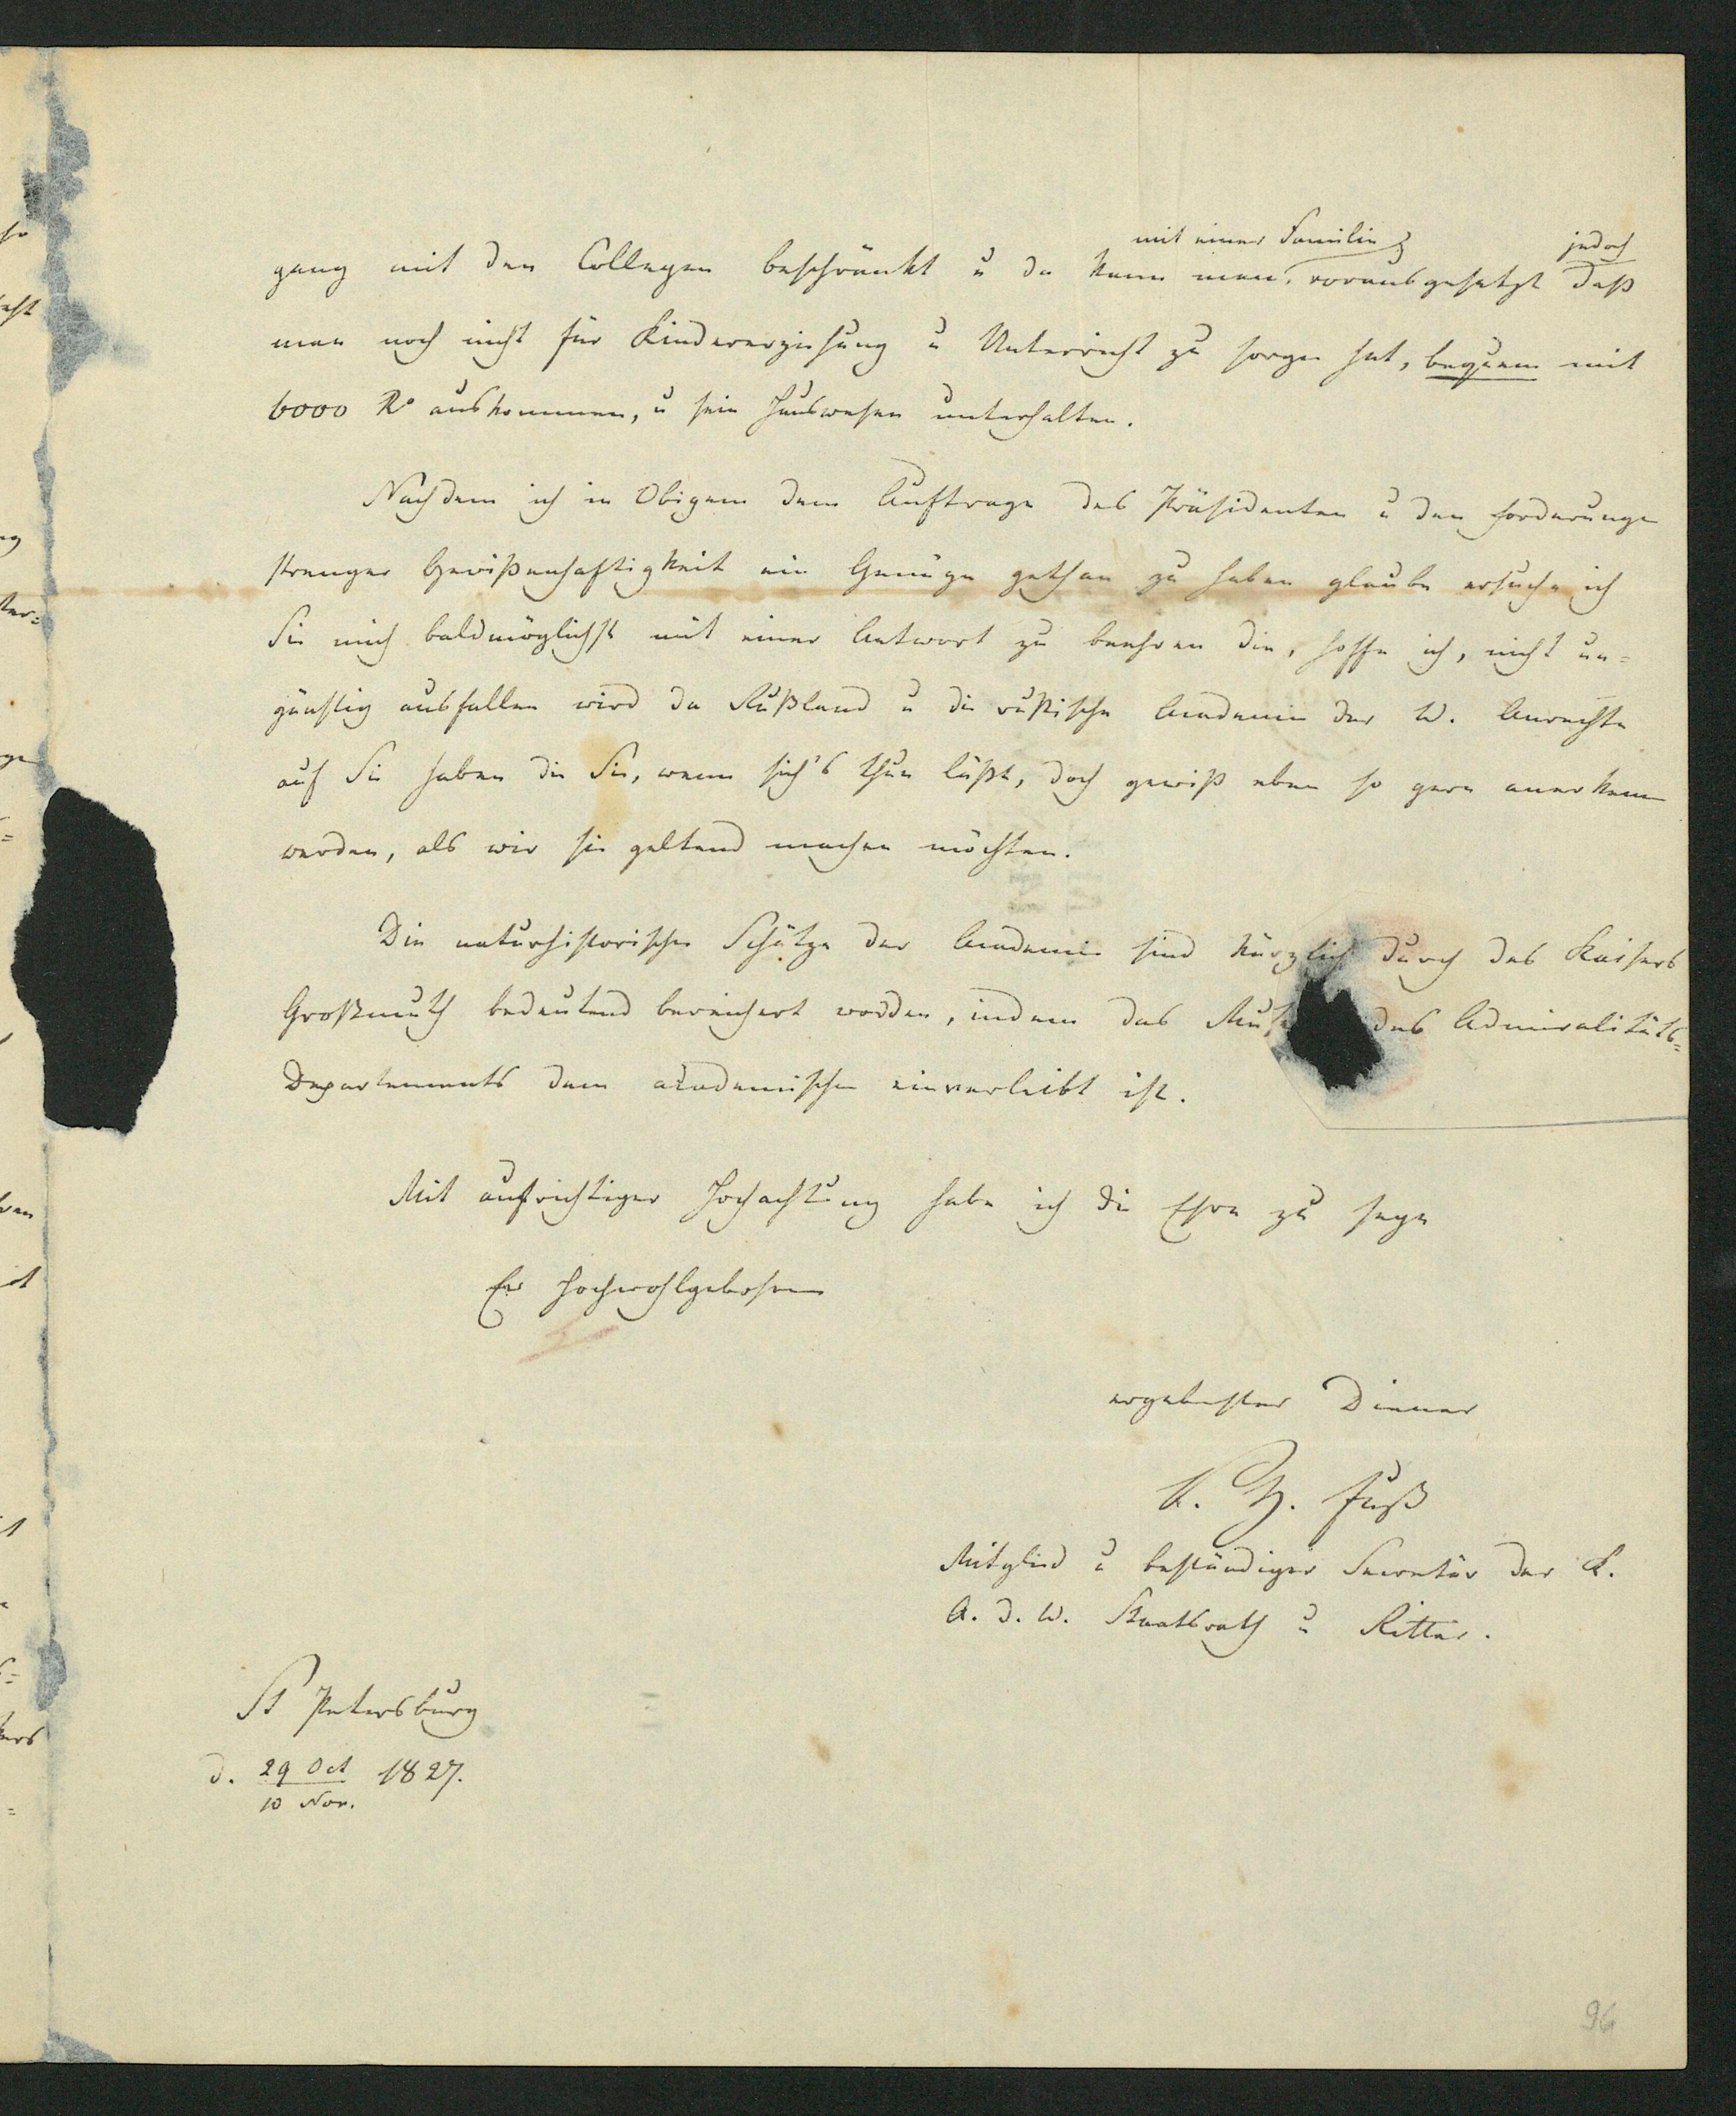 gang mit den Collegen beschränkt u da kann man, mit einer Familie, vorausgesetzt jedoch daß
man noch nicht für Kindererziehung u Unterricht zu sorgen hat, bequem mit
6000 R° auskommen, u sein Hauswesen unterhalten.
Nachdem ich in Obigem dem Auftrage des Präsidenten u den Forderungen
strenger Gewißenhaftigkeit ein Genüge gethan zu haben glaube ersuche ich
Sie mich baldmöglichst mit einer Antwort zu beehren die, hoffe ich, nicht un=
günstig ausfallen wird da Rußland u die rußische Academie der W. Anrechte
auf Sie haben die Sie, wenn sich's thun läßt, doch gewiß eben so gern anerkennen
werden, als wir sie geltend machen möchten.
Die naturhistorischen Schätze der Academie sind kürzlich durch des Kaisers
Großmuth bedeutend bereichert worden, indem das Mus des Admiralitäts=
Departements dem academischen einverleibt ist.
Mit aufrichtiger Hochachtung habe ich die Ehre zu seyn
Ew Hochwohlgebohren
ergebenster Diener
P. H. Fuß
Mitglied u beständiger Secretär der K.
A. d. W. Staatsrath u Ritter.
St Petersburg
d. 29 Oct 1827.
10 Nov.
96